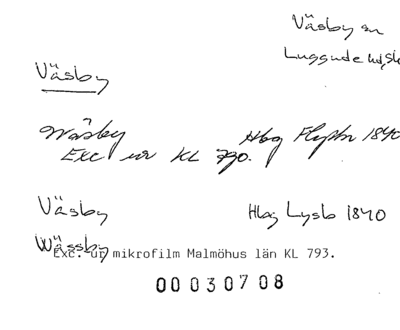 Väsby sn
Luggude hd, sk
Väsby
Wäsby Hbg Flyshr 1840
Exc ur KL 790.
Väsby Hbg Lysb 1840
Wässby
Exc. ur mikrofilm Malmöhus län KL 793.
00030708